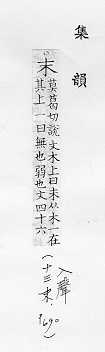 集韻
末
莫葛切說文木上曰末从木一在
其上一曰無也弱也文四十六
入聲
(十三末.
p690